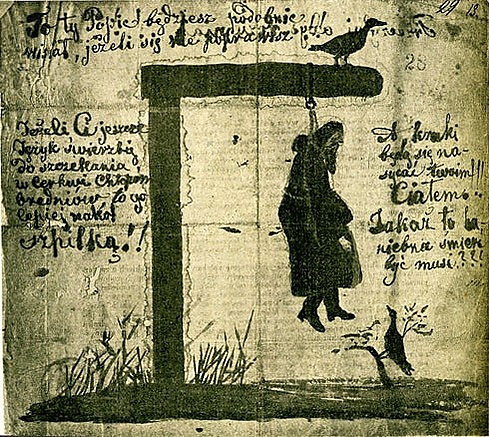 To ty Popie! będziesz podobnie
wisiał, jeżeli się nie poprawisz
13.
28
Jeżeli Ci jeszcze
Język swierzbą
Do szczekania
w Cerkwi Chłopom
bredniów, to go
lepiej nakol
szpilką!!
A kruki
będą się na-
sycać twoim!!
Ciałem.
Jakaż to ha-
niebna smierć
być musi.???